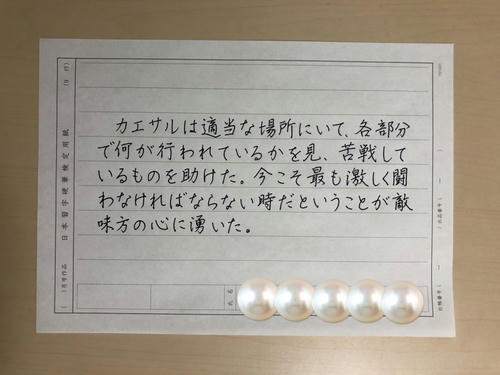 カエサルは適当な場所にいて、各部分
で何が行われているかを見、苦戦して
いるものを助けた。今こそ最も激しく闘
わなければならない時だということが敵
味方の心に湧いた。
日本習字硬筆検定用紙
月号作品
氏名